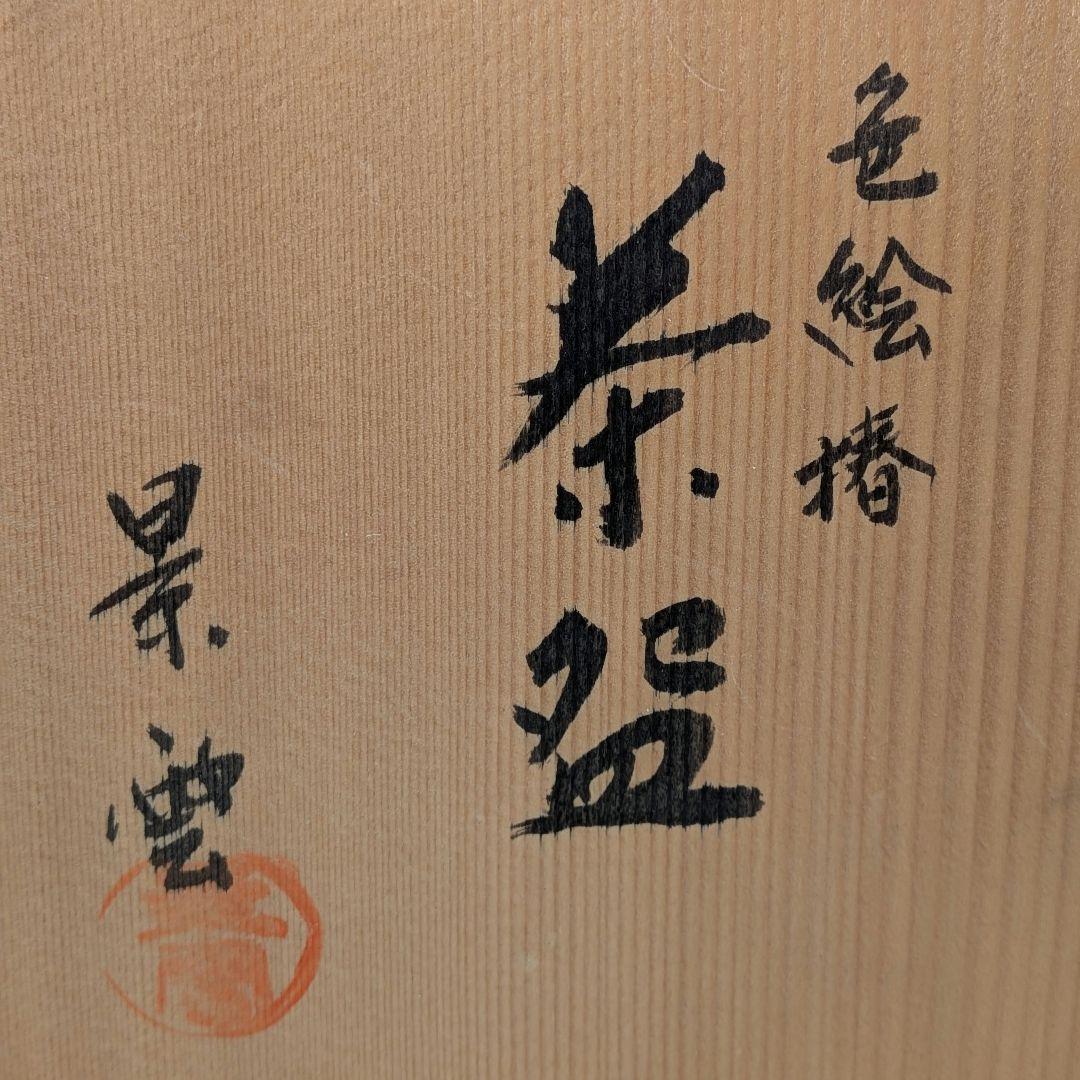 色絵椿
茶盌
景雲